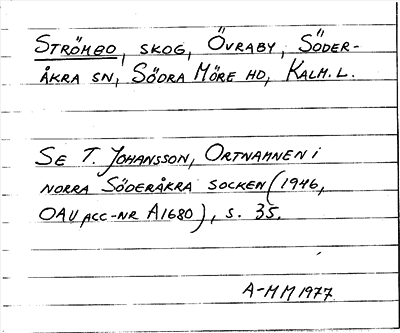 STRÖMBO, SKOG, ÖVRABY, SÖDER-
ÅKRA SN, SÖDRA MÖRE HD, KALM. L.
SE T. JOHANSSON, ORTNAMNEN I
NORRA SÖDERÅKRA SOCKEN (1946,
OAU ACC-NR A1680), S. 35.
A-MM 1977